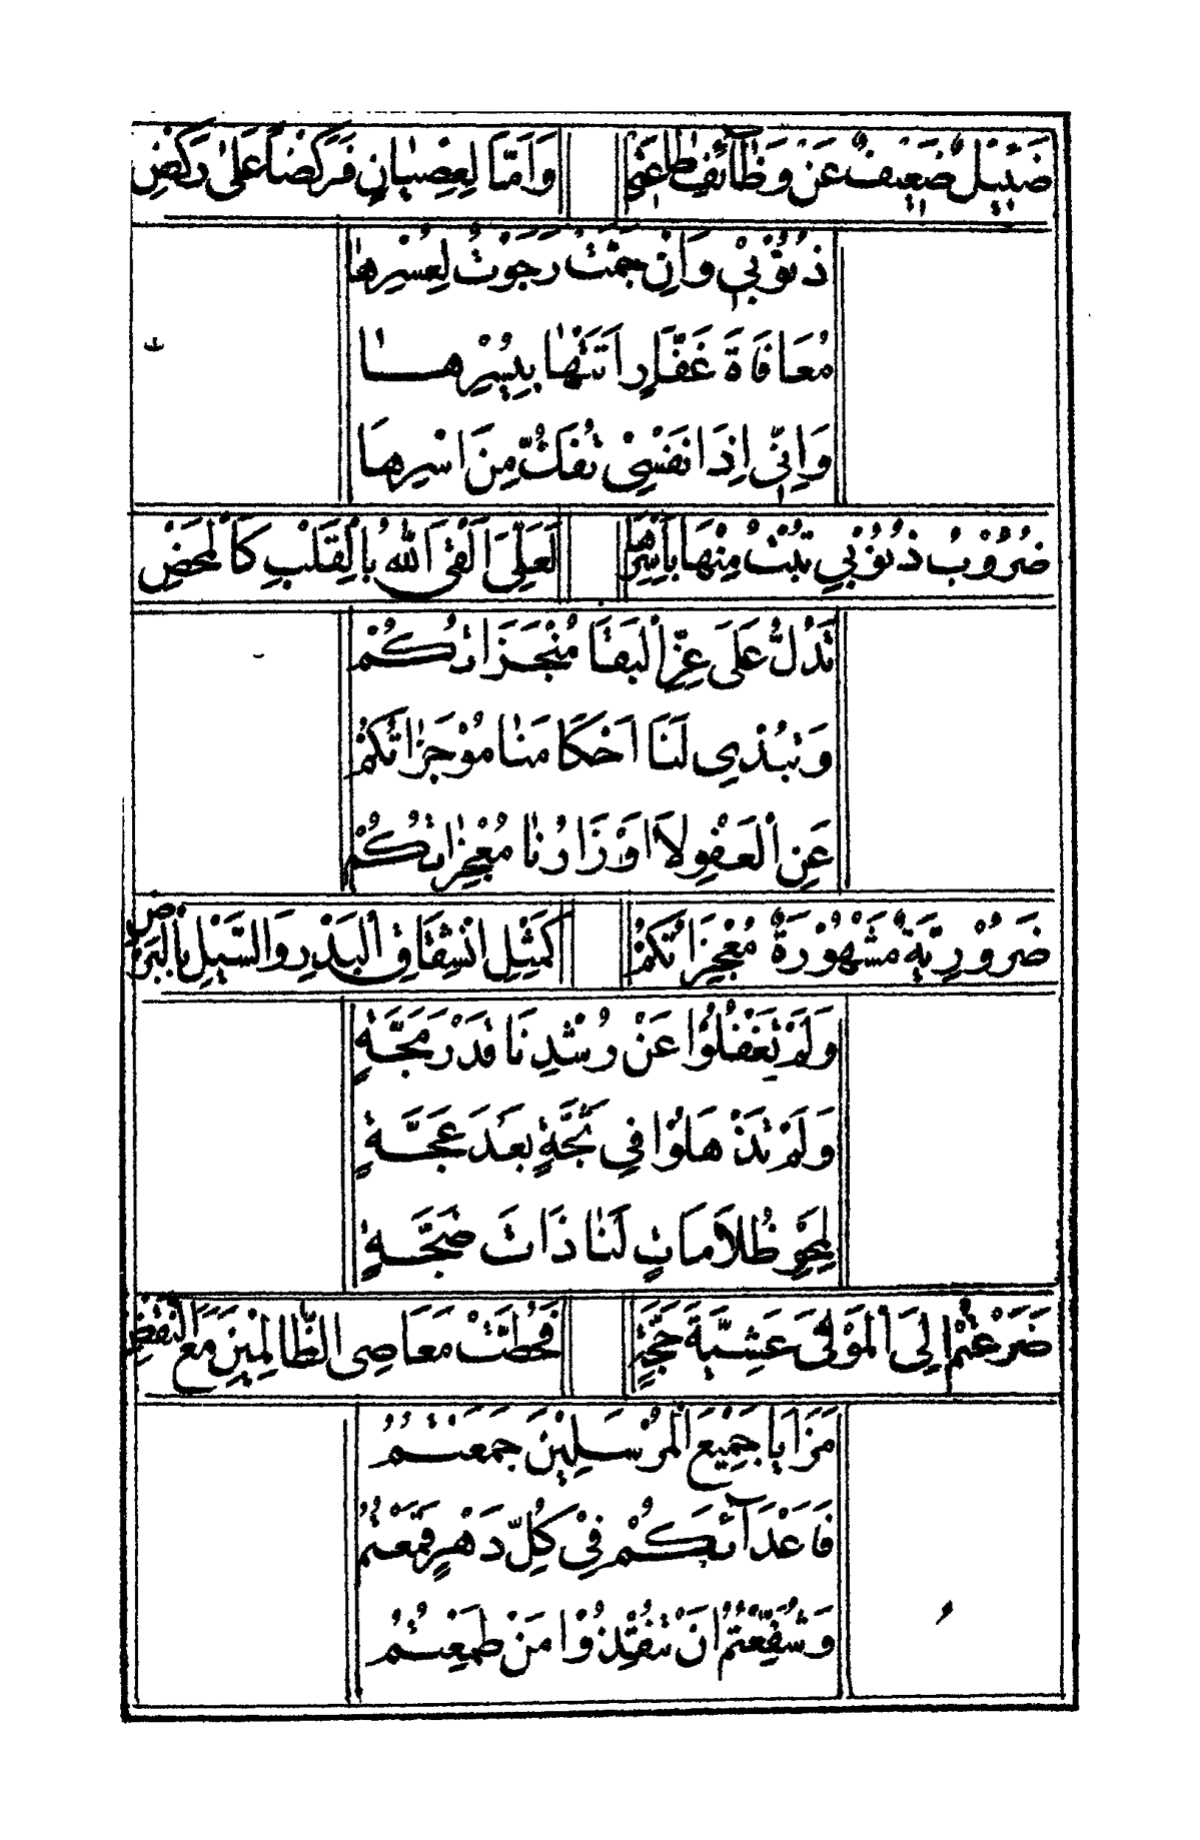 ضَئِيْلٌ ضَعِيفٌ عَنْ وَظَآئِفِ طَاعَتِي وَاَمَّا لِعِصْيَانٍ فَرَكْضًا عَلٰى رَكْضِ
ذُنُوْبِيْ وَاِنْ جَمَّتْ رَجَوْتُ لِعُسْرِهَا
مُعَافَاةَ غَفَّارٍ اَتَتْهَا بِيُسْرِهَا
وَاِنِّي اِذَا نَفْسِيْ تُفَكُّ مِنَ اسْرِهَا
ضُرُوْبُ ذُنُوْبِي تُبْتُ مِنْهَا بِأَسْرِهَا لَعَلِّيَ اَلْقَى اللهَ بِالْقَلْبِ كَالْمَحْضِ
تَدُلُّ عَلَى عِزِّ الْبَقَا مُنْجَزَاتُكُمْ
وَتُبْدِي لَنَا اَحْكَامَنَا مُوْجَزَاتُكُمْ
عَنِ الْعَفْوِ لَا اَوْزَارُنَا مُعْجِزَاتُكُمْ
ضَرُوْرِيَّةٌ مَشْهُوْرَةٌ مُعْجِزَاتُكُمْ كَمَثِلِ انْشِقَاقِ الْبَدْرِ وَالسَّيْلِ بِالْبَرْضِ
وَلَمْ تَغْفُلُوْا عَنْ رُشْدِنَا قَدْرَ مَجَّةٍ
وَلَمْ تَذْهَلُوْا فِي ثَجَّةٍ بَعْدَ عَجَّةٍ
لِمَحْوِ ظُلَامَاتٍ لَنَا ذَاتَ ضَجَّةٍ
ضَرَعْتُمْ اِلَى الْمَوْلَى عَشِيَّةَ حَجَّةٍ فَحُطَّتْ مَعَاصِى الظَّالِمِيْنَ مَعَ النَّقْضِ
مَزَايَا جَمِيْعِ الْمُرْسَلِيْنَ جَمَعْتُمُ
فَاَعْدَآئَكُمْ فِيْ كُلِّ دَهْرٍ قَمَعْتُمُ
وَشُفِّعْتُمُ اَنْ تُنْقِذُوْا مَنْ طَمِعْتُمُ